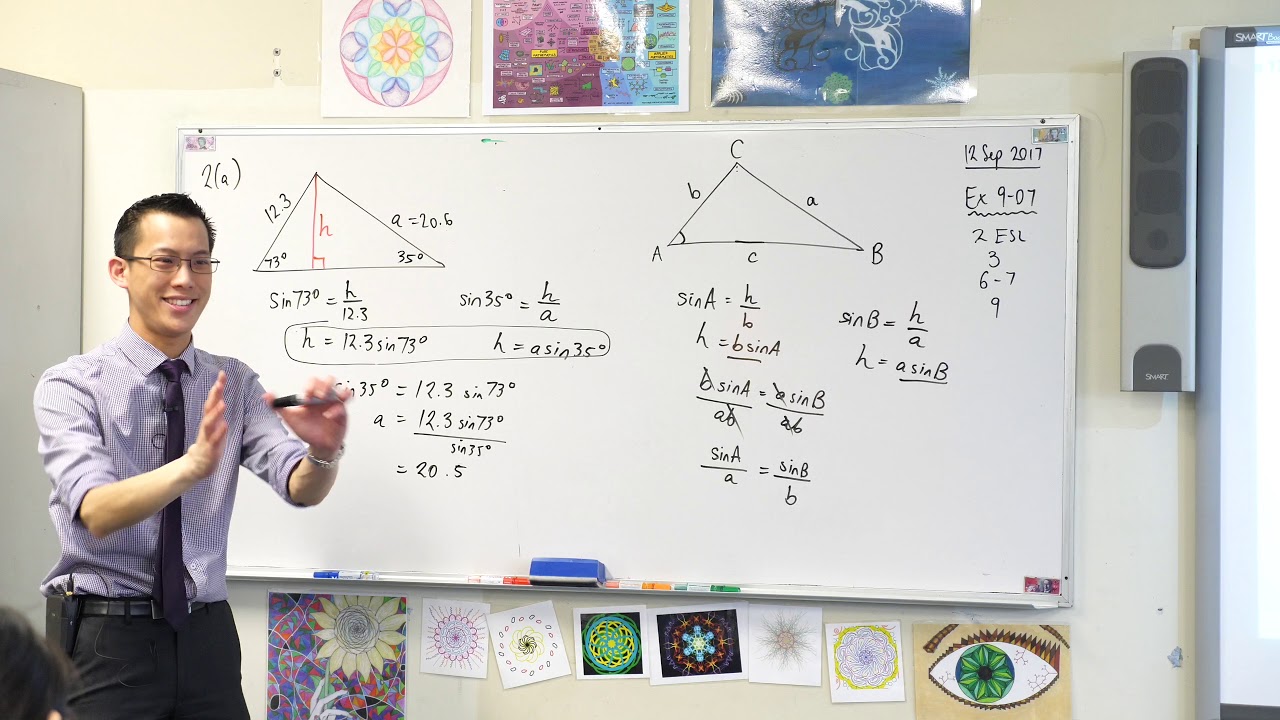 2(a)
12.3
h
a = 20.6
73°
35°
sin73° = h/12.3
sin35° = h/a
h = 12.3 sin73°
h = a sin35°
sin35° = 12.3 sin73°
a = 12.3 sin73°/sin35°
= 20.5
C
b
a
A
c
B
sinA = h/b
h = b sinA
sinB = h/a
h = a sinB
b sinA/ab = a sinB/ab
sinA/a = sinB/b
12 Sep 2017
Ex 9-07
2 ESL
3
6-7
9
SMART
SMART